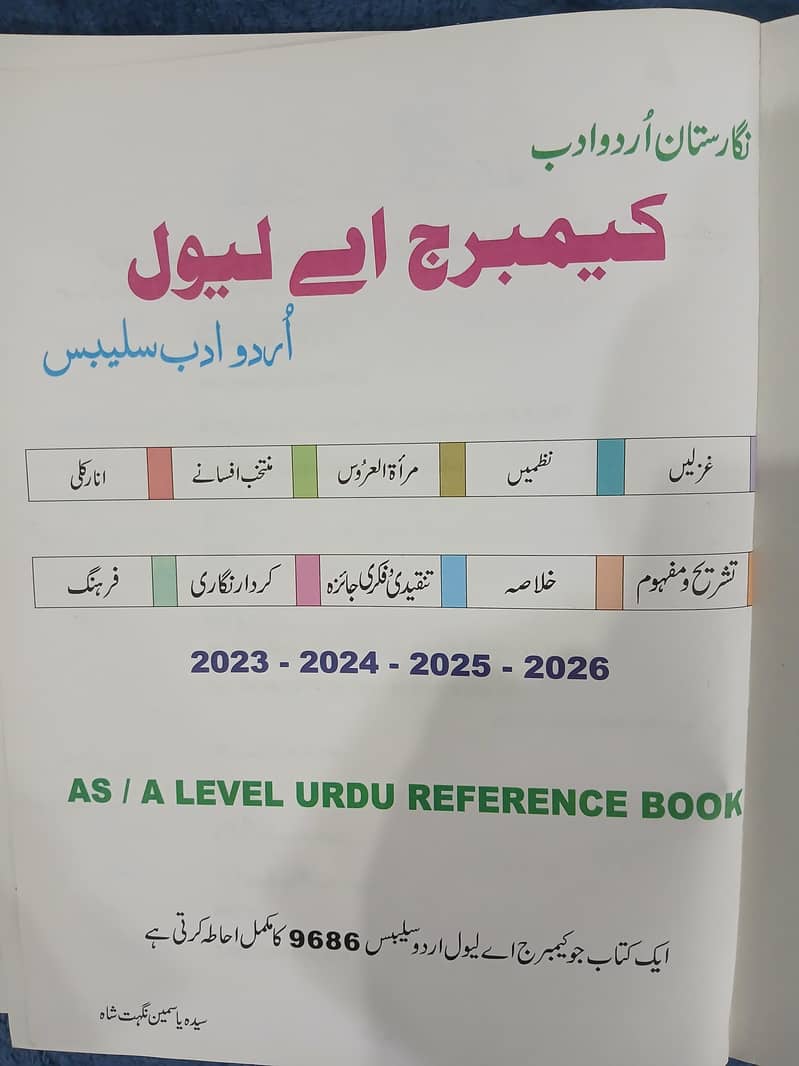 نگارستان اُردو ادب
کیمبرج اے لیول
اُردو ادب سلیبس
غزلیں نظمیں مرأۃ العرُوس منتخب افسانے انارکلی
تشریح و مفہوم خلاصہ تنقیدی و فکری جائزہ کردار نگاری فرہنگ
2023 - 2024 - 2025 - 2026
AS / A LEVEL URDU REFERENCE BOOK
ایک کتاب جو کیمبرج اے لیول اردو سلیبس 9686 کا مکمل احاطہ کرتی ہے
سیدہ یاسمین نگہت شاہ